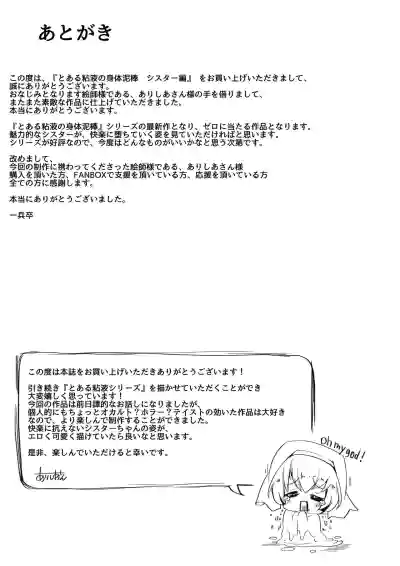 あとがき
この度は、『とある粘液の身体泥棒　シスター編』 をお買い上げいただきまして、
誠にありがとうございます。
おなじみとなります絵師様である、ありしあさん様の手を借りまして、
またまた素敵な作品に仕上げていただきました。
本当にありがとうございます。
『とある粘液の身体泥棒』シリーズの最新作となり、ゼロに当たる作品となります。
魅力的なシスターが、快楽に堕ちていく姿を見ていただければと思います。
シリーズが好評なので、今度はどんなものがいいかなと思う次第です。
改めまして、
今回の制作に携わってくださった絵師様である、ありしあさん様
購入を頂いた方、FANBOXで支援を頂いている方、応援を頂いている方
全ての方に感謝します。
本当にありがとうございました。
一兵卒
この度は本誌をお買い上げいただきありがとうございます！
引き続き『とある粘液シリーズ』を描かせていただくことができ
大変嬉しく思っています！
今回の作品は前日譚的なお話しになりましたが、
個人的にもちょっとオカルト？ホラー？テイストの効いた作品は大好き
なので、より楽しんで制作することができました。
快楽に抗えないシスターちゃんの姿が、
エロく可愛く描けていたら良いなと思います。
是非、楽しんでいただけると幸いです。
Oh my god!